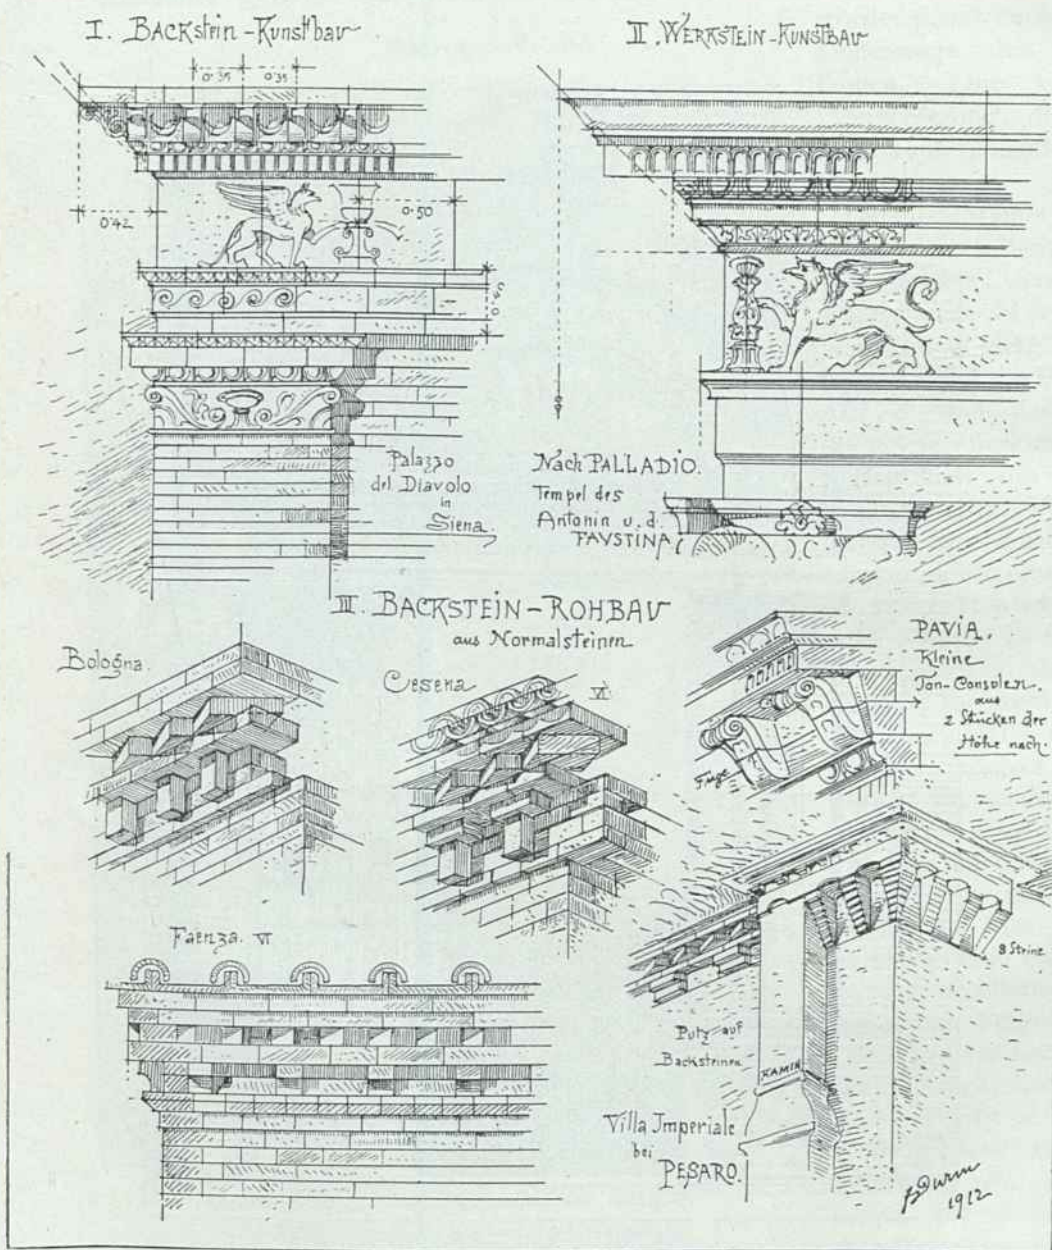 I. BACKstein-Kunstbau
II. WERKSTEIN-KUNSTBAU
0·35 0·35
0·42
0·50
0·40
Palazzo
del Diavolo
in
Siena.
Nach PALLADIO.
Tempel des
Antonin u. d.
FAVSTINA
III. BACKSTEIN-ROHBAU
aus Normalsteinen
Bologna.
Cesena
VI
PAVIA.
Kleine
Ton-Consolen.
aus
2 Stücken der
Höhe nach.
Fuge
Faenza. VI
8 Steine
Putz auf
Backsteinen
KAMIN
Villa Imperiale
bei
PESARO.
J Durm
1912